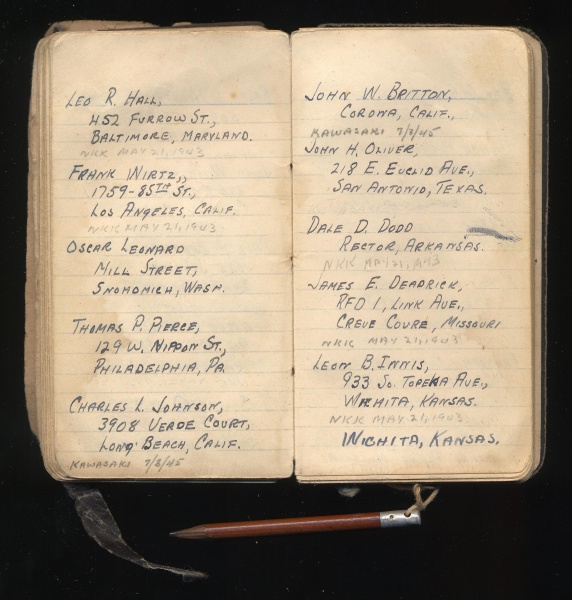 LEO R. HALL,
452 FURROW ST.,
BALTIMORE, MARYLAND.
NKK MAY 21, 1943
FRANK WIRTZ,,
1759-85TH ST.,
LOS ANGELES, CALIF.
NKK MAY 21, 1943
OSCAR LEONARD
MILL STREET,
SNOHOMICH, WASH.
THOMAS P. PIERCE,
129 W. NIPPON ST.,
PHILADELPHIA, PA.
CHARLES L. JOHNSON,
3908 VERDE COURT,
LONG BEACH, CALIF.
KAWASAKI 7/8/45
JOHN W. BRITTON,
CORONA, CALIF.,
KAWASAKI 7/8/45
JOHN H. OLIVER,
218 E. EUCLID AVE.,
SAN ANTONIO, TEXAS.
DALE D. DODD
RECTOR, ARKANSAS.
NKK MAY 21, 1943
JAMES E. DEADRICK,
RFD 1, LINK AVE.,
CREVE COURE, MISSOURI
NKK MAY 21, 1943
LEON B. INNIS,
933 SO. TOPEKA AVE.,
WICHITA, KANSAS.
NKK MAY 21, 1943
WICHITA, KANSAS.